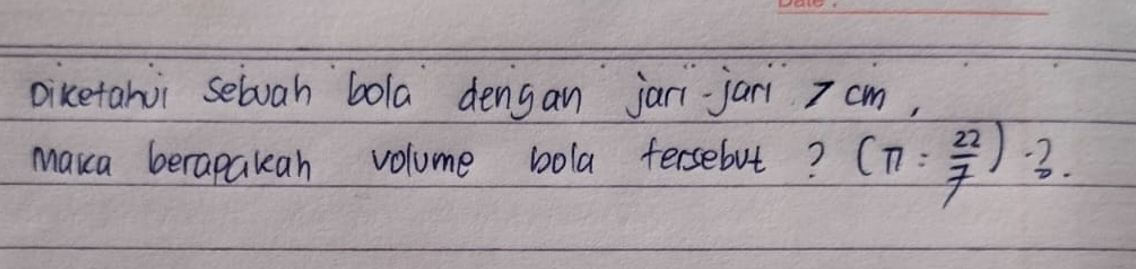 Date :
Diketahui sebuah bola dengan jari-jari 7 cm,
Maka berapakah volume bola tersebut ? (π = 22/7) ?.